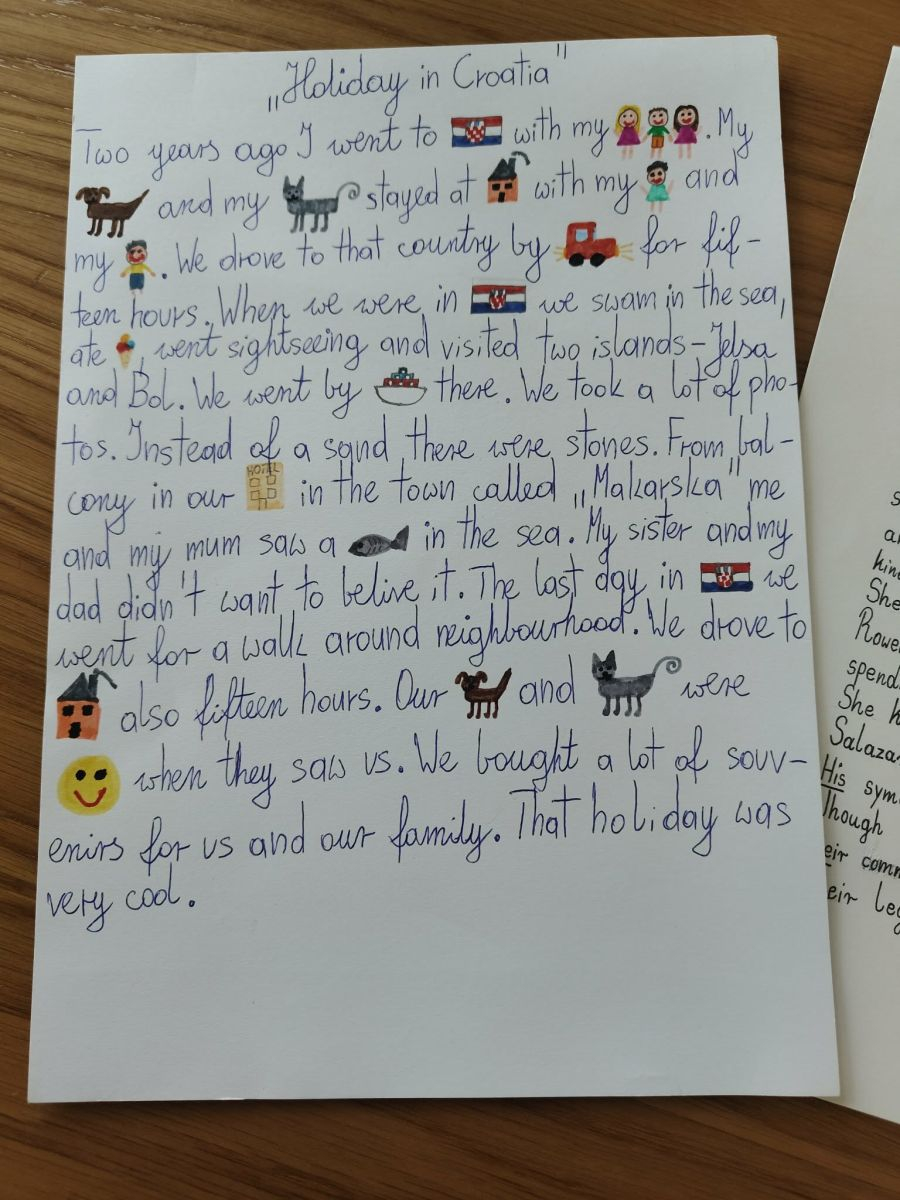 „Holiday in Croatia"
Two years ago I went to with my . My
and my stayed at with my and
my . We drove to that country by for fif-
teen hours. When we were in we swam in the sea,
ate , went sightseeing and visited two islands - Jelsa
and Bol. We went by there. We took a lot of pho-
tos. Instead of a sand there were stones. From bal-
cony in our HOTEL in the town called „Makarska" me
and my mum saw a in the sea. My sister and my
dad didn't want to belive it. The last day in we
went for a walk around neighbourhood. We drove to
also fifteen hours. Our and were
when they saw us. We bought a lot of souv-
enirs for us and our family. That holiday was
very cool.
She
Rower
spend
She h
Salaza
His sym
Though
eir comm
eir leg